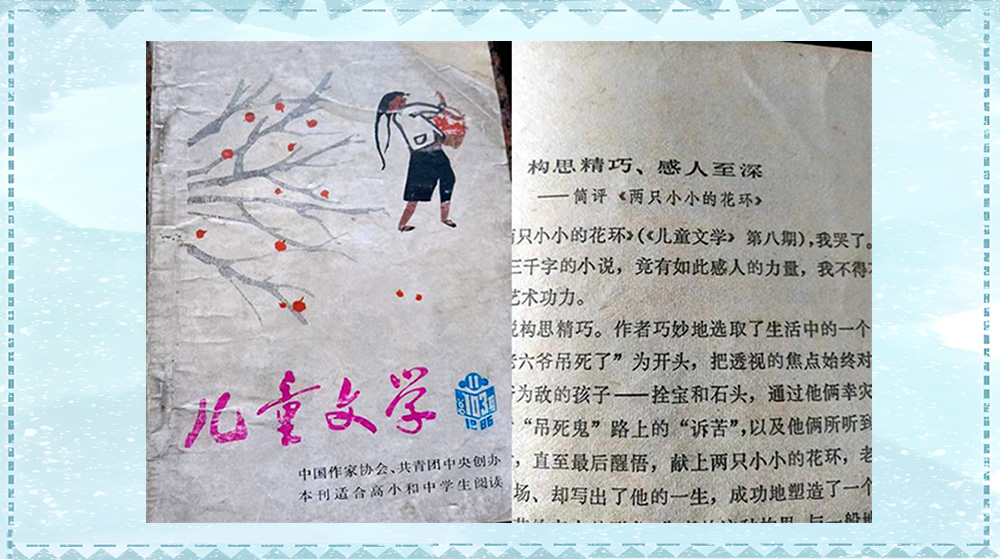 儿童文学
11
103期
1986
中国作家协会、共青团中央创办
本刊适合高小和中学生阅读
构思精巧、感人至深
——简评《两只小小的花环》
只小小的花环》(《儿童文学》第八期),我哭了。
三千字的小说，竟有如此感人的力量，我不得
艺术功力。
构思精巧。作者巧妙地选取了生活中的一个
六爷吊死了”为开头，把透视的焦点始终对
为敌的孩子——拴宝和石头，通过他俩幸灾
“吊死鬼”路上的“诉苦”,以及他俩所听到
，直至最后醒悟，献上两只小小的花环，老
场、却写出了他的一生，成功地塑造了一个